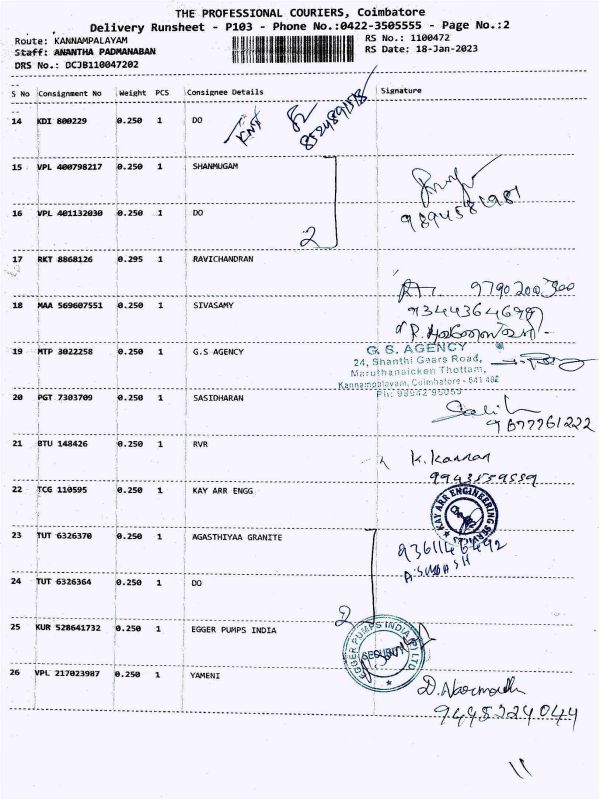 THE PROFESSIONAL COURIERS, Coimbatore
Delivery Runsheet - P103 - Phone No.:0422-3505555 - Page No.:2
Route: KANNAMPALAYAM RS No.: 1100472
Staff: ANANTHA PADMANABAN RS Date: 18-Jan-2023
DRS No.: DCJB110047202
S No Consignment No Weight PCS Consignee Details Signature
14 KDI 800229 0.250 1 DO
15 VPL 400798217 0.250 1 SHANMUGAM
9894581981
16 VPL 401132030 0.250 1 DO
2
17 RKT 8868126 0.295 1 RAVICHANDRAN
9790200300
18 MAA 569607551 0.250 1 SIVASAMY
19 MTP 3022258 0.250 1 G.S AGENCY
G. S. AGENCY
24, Shanthi Gears Road,
Maruthanaicken Thottam,
Kannampalayam, Coimbatore - 641 402
20 PGT 7303709 0.250 1 SASIDHARAN
9877761222
21 BTU 148426 0.250 1 RVR
K. Kannan
22 TCG 110595 0.250 1 KAY ARR ENGG
KAY ARR ENGINEERING
23 TUT 6326370 0.250 1 AGASTHIYAA GRANITE
9361146492
A.SUBASH
24 TUT 6326364 0.250 1 DO
2
25 KUR 528641732 0.250 1 EGGER PUMPS INDIA
EGGER PUMPS INDIA (P) LTD.
SECURITY
26 VPL 217023987 0.250 1 YAMENI
9445224044
11